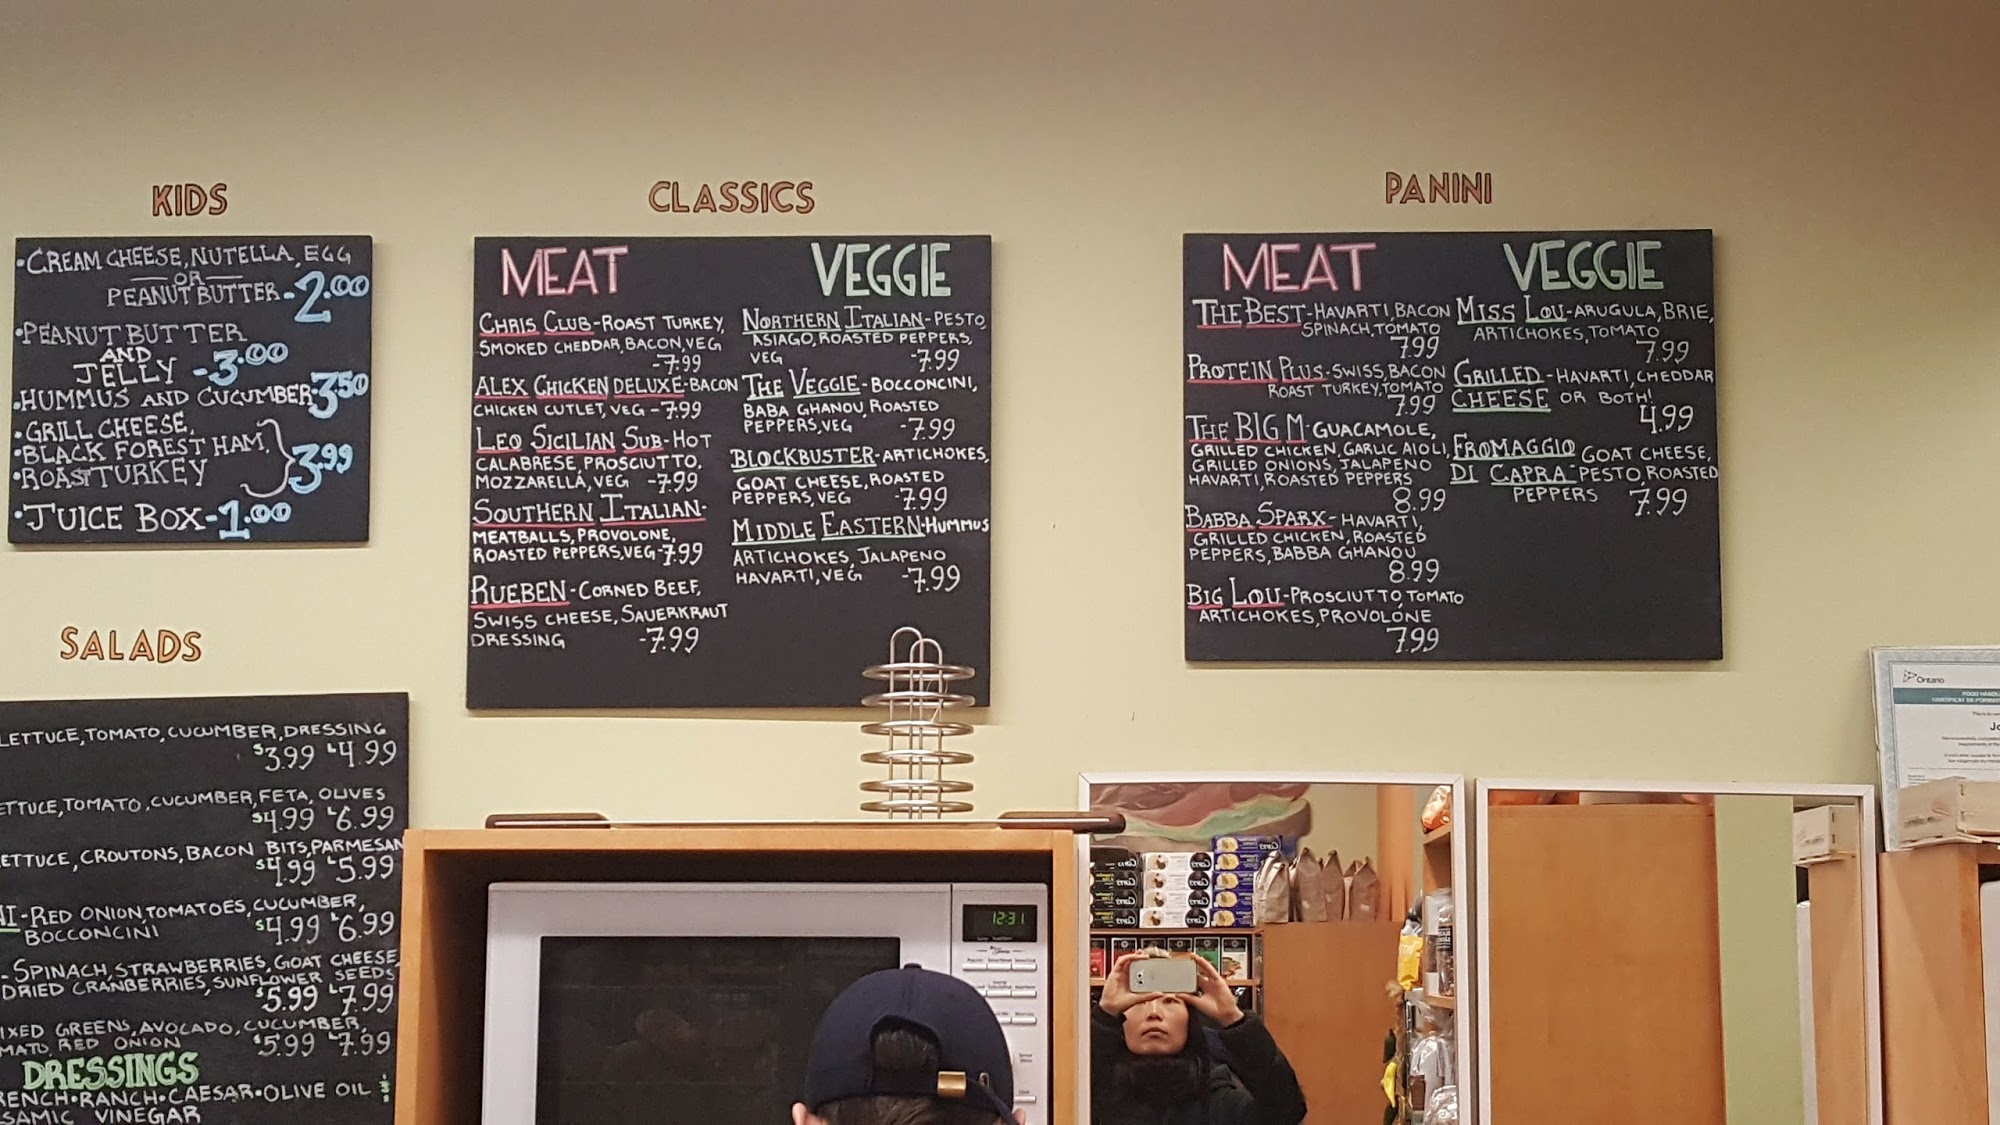 KIDS
•CREAM CHEESE, NUTELLA, EGG
—OR—
PEANUT BUTTER-2.00
•PEANUT BUTTER
AND
JELLY -3.00
•HUMMUS AND CUCUMBER-3.50
•GRILL CHEESE,
•BLACK FOREST HAM,
•ROAST TURKEY
3.99
•JUICE BOX-1.00
SALADS
LETTUCE, TOMATO, CUCUMBER, DRESSING
S3.99 L4.99
LETTUCE, TOMATO, CUCUMBER, FETA, OLIVES
S4.99 L6.99
LETTUCE, CROUTONS, BACON BITS, PARMESAN
S4.99 L5.99
-RED ONION TOMATOES, CUCUMBER,
BOCCONCINI S4.99 L6.99
-SPINACH, STRAWBERRIES, GOAT CHEESE,
DRIED CRANBERRIES, SUNFLOWER SEEDS
S5.99 L7.99
MIXED GREENS, AVOCADO, CUCUMBER,
RED ONION S5.99 L7.99
DRESSINGS
FRENCH•RANCH•CAESAR•OLIVE OIL &
VINEGAR
CLASSICS
MEAT
CHRIS CLUB-ROAST TURKEY,
SMOKED CHEDDAR, BACON, VEG
-7.99
ALEX CHICKEN DELUXE-BACON
CHICKEN CUTLET, VEG -7.99
LEO SICILIAN SUB-HOT
CALABRESE, PROSCIUTTO,
MOZZARELLA, VEG -7.99
SOUTHERN ITALIAN-
MEATBALLS, PROVOLONE,
ROASTED PEPPERS, VEG-7.99
RUEBEN-CORNED BEEF,
SWISS CHEESE, SAUERKRAUT
DRESSING -7.99
VEGGIE
NORTHERN ITALIAN-PESTO,
ASIAGO, ROASTED PEPPERS,
VEG -7.99
THE VEGGIE-BOCCONCINI,
BABA GHANOU, ROASTED
PEPPERS, VEG -7.99
BLOCKBUSTER-ARTICHOKES,
GOAT CHEESE, ROASTED
PEPPERS, VEG -7.99
MIDDLE EASTERN-HUMMUS
ARTICHOKES, JALAPENO
HAVARTI, VEG -7.99
PANINI
MEAT
THE BEST-HAVARTI, BACON
SPINACH, TOMATO
7.99
PROTEIN PLUS-SWISS, BACON
ROAST TURKEY, TOMATO
7.99
THE BIG M-GUACAMOLE,
GRILLED CHICKEN, GARLIC AIOLI,
GRILLED ONIONS, JALAPENO
HAVARTI, ROASTED PEPPERS
8.99
BABBA SPARX-HAVARTI,
GRILLED CHICKEN, ROASTED
PEPPERS, BABBA GHANOU
8.99
BIG LOU-PROSCIUTTO, TOMATO
ARTICHOKES, PROVOLONE
7.99
VEGGIE
MISS LOU-ARUGULA, BRIE,
ARTICHOKES, TOMATO
7.99
GRILLED -HAVARTI, CHEDDAR
CHEESE OR BOTH!
4.99
FROMAGGIO GOAT CHEESE,
DI CAPRA-PESTO, ROASTED
PEPPERS 7.99
Ontario
12:31